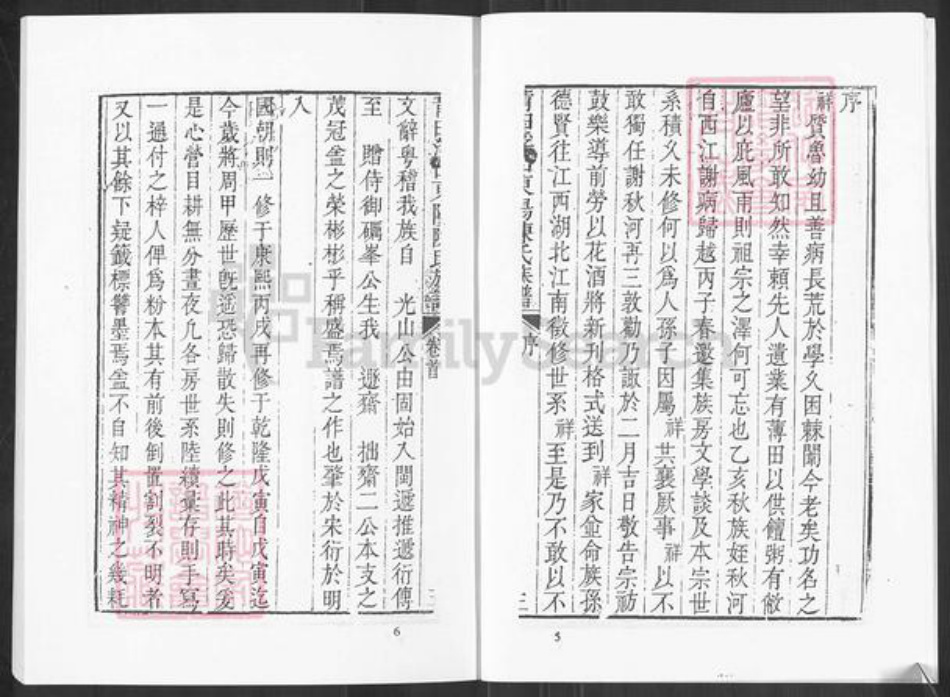 序
祥質魯幼且善病長荒於學久困棘闈今老矣功名之
望非所敢知然幸賴先人遺業有薄田以供饘粥有敝
廬以庇風雨則祖宗之澤何可忘也乙亥秋族姪秋河
自西江謝病歸越丙子春邀集族房文學談及本宗世
系積久未修何以爲人孫子因屬 祥 共襄厥事 祥 以不
敢獨任謝秋河再三敦勸乃諏於二月吉日敬告宗祊
鼓樂導前勞以花酒將新刊格式送到 祥 家僉命族孫
德賢往江西湖北江南徵修世系 祥 至是乃不敢以不
東陽陳氏族譜 序 三
5
陳氏族譜 卷首
文辭粵稽我族自 光山 公由固始入閩遞推遞衍傳
至 贈侍御礪峯公生我 遯齋 拙齋二公本支之
茂冠盍之榮彬彬乎稱盛焉譜之作也肇於宋衍於明
入
國朝則一修于康熙丙戌再修于乾隆戊寅自戊寅迄
今歲將周甲歷世旣遥恐歸散失則修之此其時矣爰
是心營目耕無分晝夜凢各房世系陸續彙存則手寫
一通付之梓人俾爲粉本其有前後倒置割裂不明者
又以其餘下疑籤標響墨焉盍不自知其精神之幾耗
6
FamilySearch